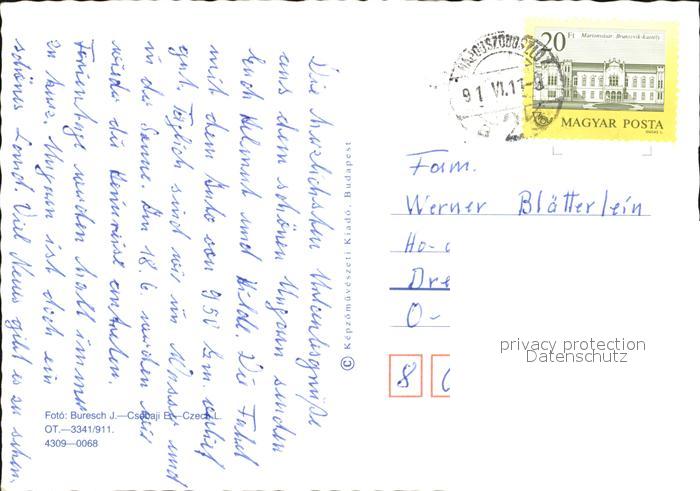 Die herzlichsten Urlaubsgrüße
aus dem schönen Ungarn senden
Euch Helmut und Hilde. Die Fahrt
mit dem Auto von 950 km verlief
gut. Täglich sind wir im Wasser und
in der Sonne. Am 18. 6. werden wir
wieder die Heimreise antreten.
werden halt immer
zu kurz. Ungarn ist doch ein
schönes Land. Viel Neues gibt es zu sehen.
Fotó: Buresch J.—Csabaji B.—Czech L.
OT.—3341/911.
4309—0068
© Képzőművészeti Kiadó, Budapest
HAJDUSZOBOSZLÓ
91 VI.11
20 Ft
Martonvásár: Brunszvik-kastély
MAGYAR POSTA
Fam.
Werner Blätterlein
Ho-
Dre
O-
8
privacy protection
Datenschutz